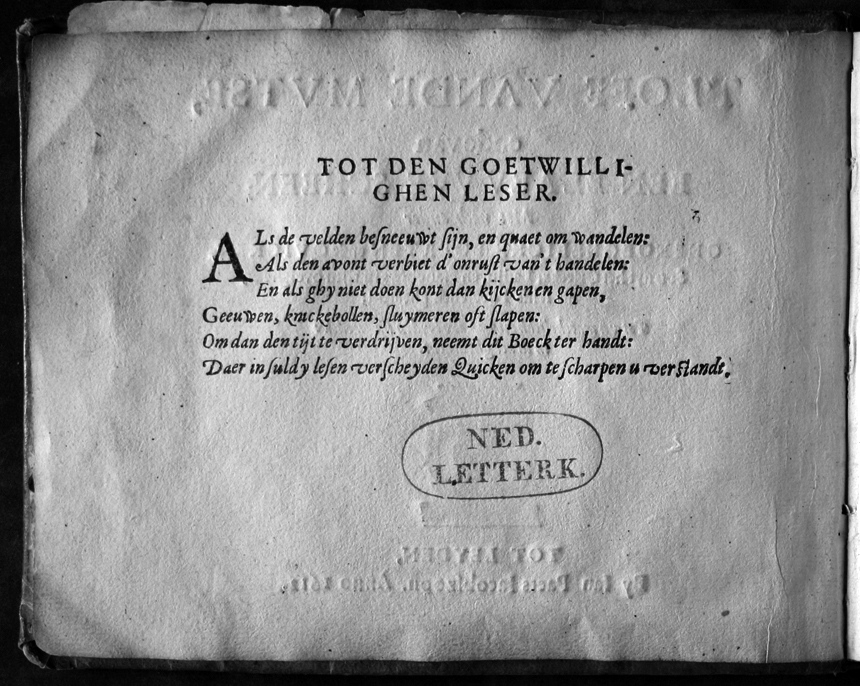 TOT DEN GOETWILLI-
GHEN LESER.
ALs de velden besneeuwt sijn, en quaet om wandelen:
Als den avont verbiet d'onrust van't handelen:
En als ghy niet doen kont dan kijcken en gapen,
Geeuwen, knickebollen, sluymeren oft slapen:
Om dan den tijt te verdrijven, neemt dit Boeck ter handt:
Daer in suldy lesen verscheyden Quicken om te scharpen u verstandt.
NED.
LETTERK.